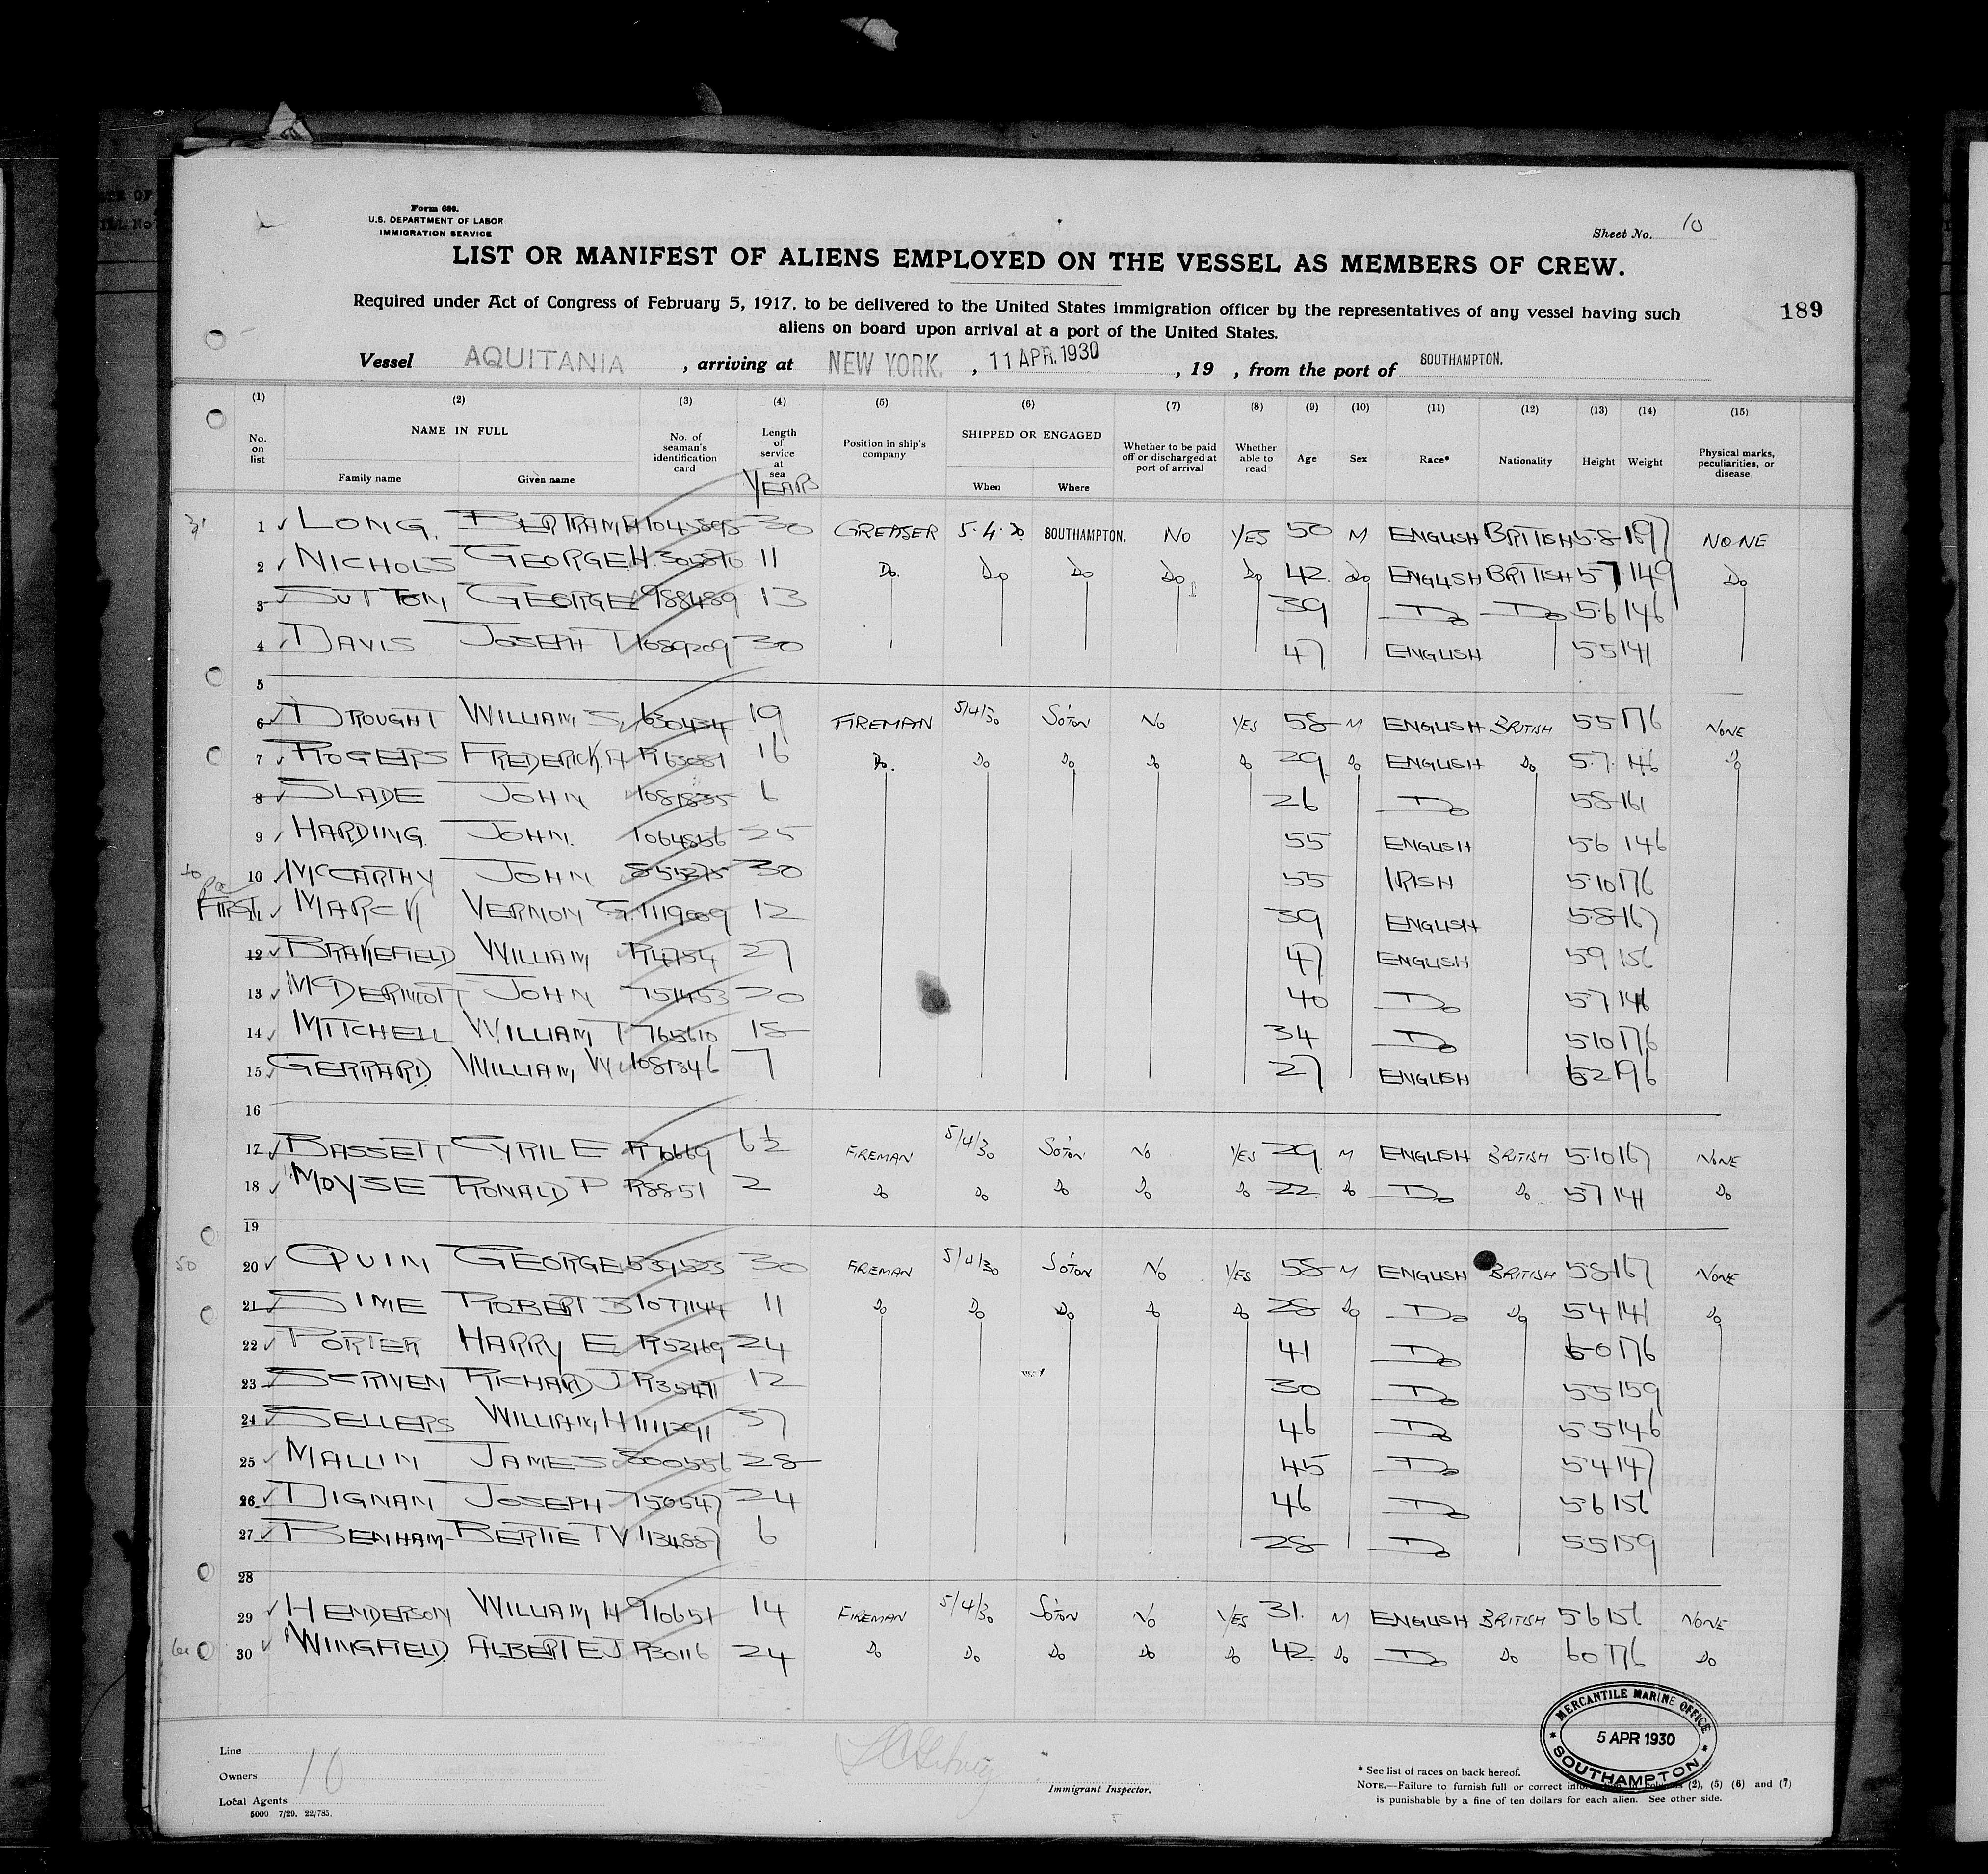 Form 680.
U.S. DEPARTMENT OF LABOR
IMMIGRATION SERVICE
Sheet No. 10
LIST OR MANIFEST OF ALIENS EMPLOYED ON THE VESSEL AS MEMBERS OF CREW.
Required under Act of Congress of February 5, 1917, to be delivered to the United States immigration officer by the representatives of any vessel having such
aliens on board upon arrival at a port of the United States.
189
Vessel AQUITANIA, arriving at NEW YORK., 11 APR. 1930, 19 , from the port of SOUTHAMPTON.
(1) (2) (3) (4) (5) (6) (7) (8) (9) (10) (11) (12) (13) (14) (15)
No. on list NAME IN FULL Family name Given name No. of seaman's identification card Length of service at sea YEARS Position in ship's company SHIPPED OR ENGAGED When Where Whether to be paid off or discharged at port of arrival Whether able to read Age Sex Race* Nationality Height Weight Physical marks, peculiarities, or disease
1 LONG. BERTRAM H 30 GREASER 5.4.30 SOUTHAMPTON. NO YES 50 M ENGLISH BRITISH 5.8 197 NONE
2 NICHOLS GEORGE H. 11 Do. Do Do Do Do 42 do ENGLISH BRITISH 57 149 Do
3 SUTTON GEORGE 988489 13 39 Do Do 5.6 146
4 DAVIS JOSEPH T 1089209 30 47 ENGLISH 55 141
5
6 DROUGHT WILLIAM S, 630434 19 FIREMAN 5/4/30 So'TON NO YES 58 M ENGLISH BRITISH 55 176 NONE
7 ROGERS FREDERICK. A 16 Do. Do Do Do Do 29 Do ENGLISH Do 5.7. 146 Do
8 SLADE JOHN 1081835 6 26 Do 58 161
9 HARDING JOHN. 1064856 25 55 ENGLISH 56 146
10 McCARTHY JOHN 30 55 IRISH 5.10 176
FIRST. 11 MARCH VERNON G. 12 39 ENGLISH 5.8 167
12 BRAKEFIELD WILLIAM R4754 27 47 ENGLISH 59 156
13 McDERMOTT JOHN 751453 20 40 Do 57 146
14 MITCHELL WILLIAM T 765610 18 34 Do 510 176
15 GERRARD WILLIAM W 1081846 7 27 ENGLISH 6.2 196
16
17 BASSETT CYRIL E R70669 6½ FIREMAN 5/4/30 So'TON NO YES 29 M ENGLISH BRITISH 5.10 167 NONE
18 MOYSE RONALD P R8851 2 Do Do Do Do Do 22 Do Do Do 57 141 Do
19
50 20 QUIN GEORGE 30 FIREMAN 5/4/30 So'TON No YES 58 M ENGLISH BRITISH 5.8 167 NONE
21 SIME ROBERT S 1077144 11 Do Do Do Do Do 28 Do Do Do 54 141 Do
22 PORTER HARRY E R52169 24 41 Do 6-0 176
23 SCRIVEN RICHARD J R35471 12 30 Do 55 159
24 SELLERS WILLIAM, H 1111291 37 46 Do 5.5 146
25 MALLIN JAMES 800556 28 45 Do 54 147
26 DIGNAM JOSEPH 750547 24 46 Do 5.6 156
27 BENHAM BERTIE T V 1134887 6 28 Do 5.5 159
28
29 HENDERSON WILLIAM H 910651 14 FIREMAN 5/4/30 So'TON No YES 31. M ENGLISH BRITISH 56 156 NONE
30 WINGFIELD ALBERT E J R30116 24 Do Do Do Do Do 42 Do Do Do 60 176 Do
MERCANTILE MARINE OFFICE
5 APR 1930
SOUTHAMPTON
Line
Owners 10
Local Agents
5000 7/29. 22/785.
Immigrant Inspector.
* See list of races on back hereof.
NOTE.—Failure to furnish full or correct (2), (5) (6) and (7)
is punishable by a fine of ten dollars for each alien. See other side.